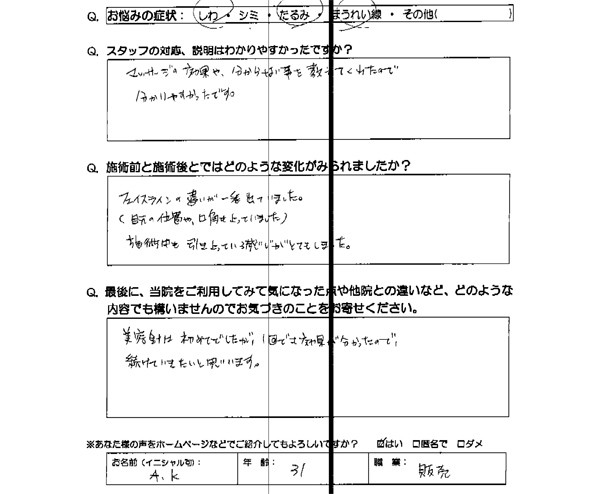 Q. お悩みの症状：しわ・シミ・たるみ・ほうれい線・その他(　　　)
Q. スタッフの対応、説明はわかりやすかったですか？
マッサージの効果や、分からない事を教えてくれたので
分かりやすかったです。
Q. 施術前と施術後とではどのような変化がみられましたか？
フェイスラインの違いが一番出ていました。
(目元の位置や、口角も上っていました)
施術中も引き上っている感じがとてもしました。
Q. 最後に、当院をご利用してみて気になった点や他院との違いなど、どのような
内容でも構いませんのでお気づきのことをお寄せください。
美容針は初めてでしたが、1回でも効果が分かったので、
続けていきたいと思います。
※あなた様の声をホームページなどでご紹介してもよろしいですか？ ☑はい □匿名で □ダメ
お名前(イニシャル可)： 年 齢： 職 業：
A.K 31 販売